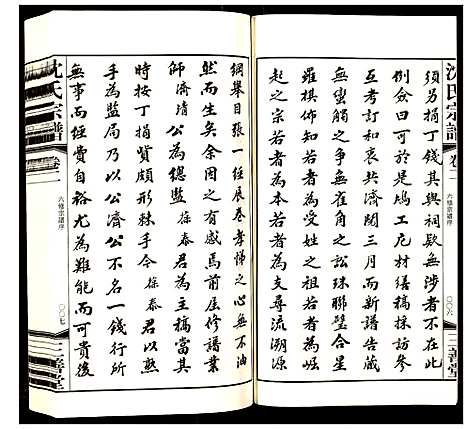 沈氏宗譜
卷二
六修宗譜序
〇〇六
三善堂
須另捐丁錢其與祠欵無涉者不在
例僉曰可於是鳩工庀材繕稿採訪參
互考訂和衷共濟閱三月而新譜告蕆
無蠻觸之爭無雀角之訟珠聯璧合星
羅棋佈知若者為受姓之祖若者為崛
起之宗若者為本若者為支尋流溯源
綱舉目張一經展卷孝悌之心無不油
然而生矣余因之有感焉前屆修譜業
師濟清公為總監徐泰君為主稿當其
時按丁捐貲頗形棘手今徐泰君以熟
手為監局乃以公濟公不名一錢行所
無事而經費自裕尤為難能而可貴後
沈氏宗譜
卷二
六修宗譜序
〇〇七
三善堂